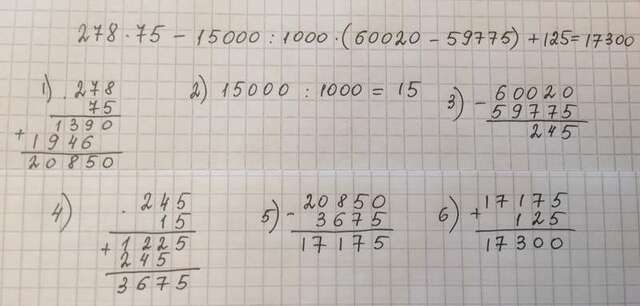 278·75 − 15000 : 1000·(60020 − 59775) + 125 = 17300
1) · 278
75
+ 1390
1946
20850
2) 15000 : 1000 = 15
3) − 60020
59775
245
4) · 245
15
+ 1225
245
3675
5) − 20850
3675
17175
6) + 17175
125
17300